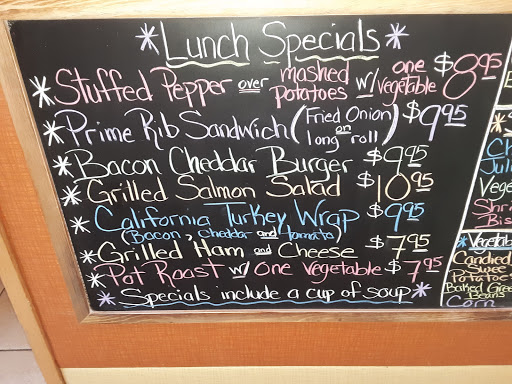 *Lunch Specials*
*Stuffed Pepper over mashed potatoes w/ one vegetable $8.95
*Prime Rib Sandwich (Fried Onion on long roll) $9.95
*Bacon Cheddar Burger $9.95
*Grilled Salmon Salad $10.95
*California Turkey Wrap $9.95
(Bacon, cheddar and tomato)
*Grilled Ham and Cheese $7.95
*Pot Roast w/ One Vegetable $7.95
*Specials include a cup of soup*
*Vegetab
Candied
Swee
Potatoes
Baked Gree
Beans
Corn